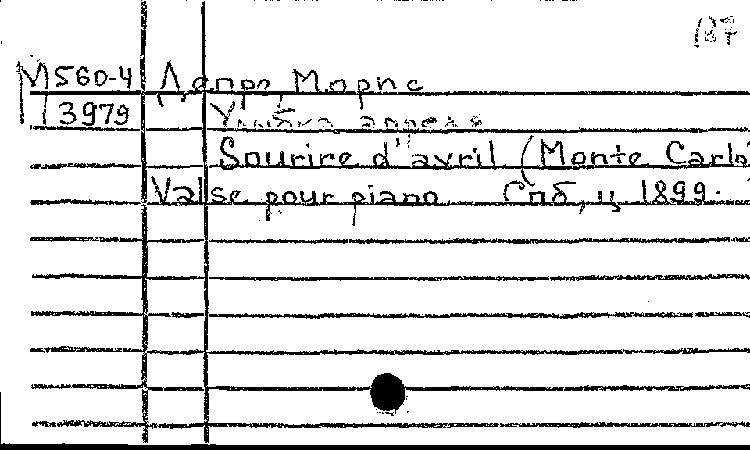 187
М560-4 Депре, Морис
3979 Улыбка апреля
Sourire d'avril (Monte Carlo)
Valse pour piano Спб, ц 1899.